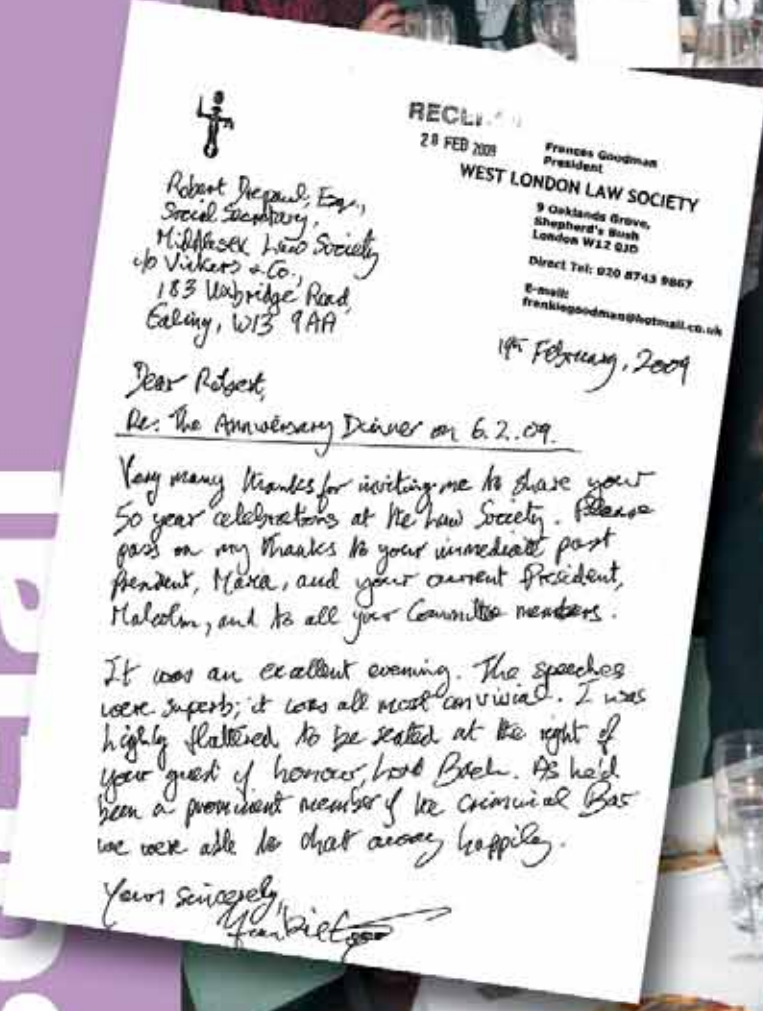 RECEI
20 FEB 2009
Frances Goodman
President
WEST LONDON LAW SOCIETY
9 Oaklands Grove,
Shepherd's Bush
London W12 0JD
Direct Tel: 020 8743 9867
E-mail:
frankiegoodman@hotmail.co.uk
Robert Drepaul, Esq.,
Social Secretary,
Middlesex Law Society
c/o Vickers & Co.,
183 Uxbridge Road,
Ealing, W13 9AA
19th February, 2009
Dear Robert,
Re: The Anniversary Dinner on 6.2.09.
Very many thanks for inviting me to share your
50 year celebrations at the Law Society. Please
pass on my thanks to your immediate past
President, Maria, and your current President,
Malcolm, and to all your Committee members.
It was an excellent evening. The speeches
were superb; it was all most convivial. I was
highly flattered to be seated at the right of
your guest of honour, Lord Bach. As he'd
been a prominent member of the Criminal Bar
we were able to chat away happily.
Yours sincerely,